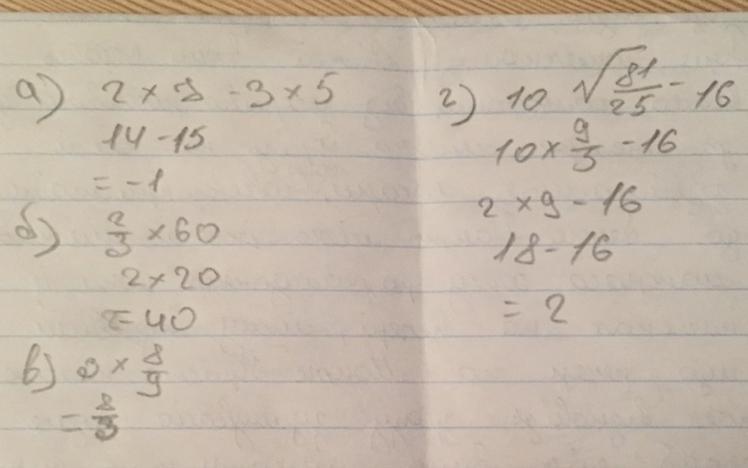 а) 2 × 7 - 3 × 5
14 - 15
= -1
б) 2/3 × 60
2 × 20
= 40
в) 3 × 8/9
= 8/3
г) 10 √81/25 - 16
10 × 9/5 - 16
2 × 9 - 16
18 - 16
= 2